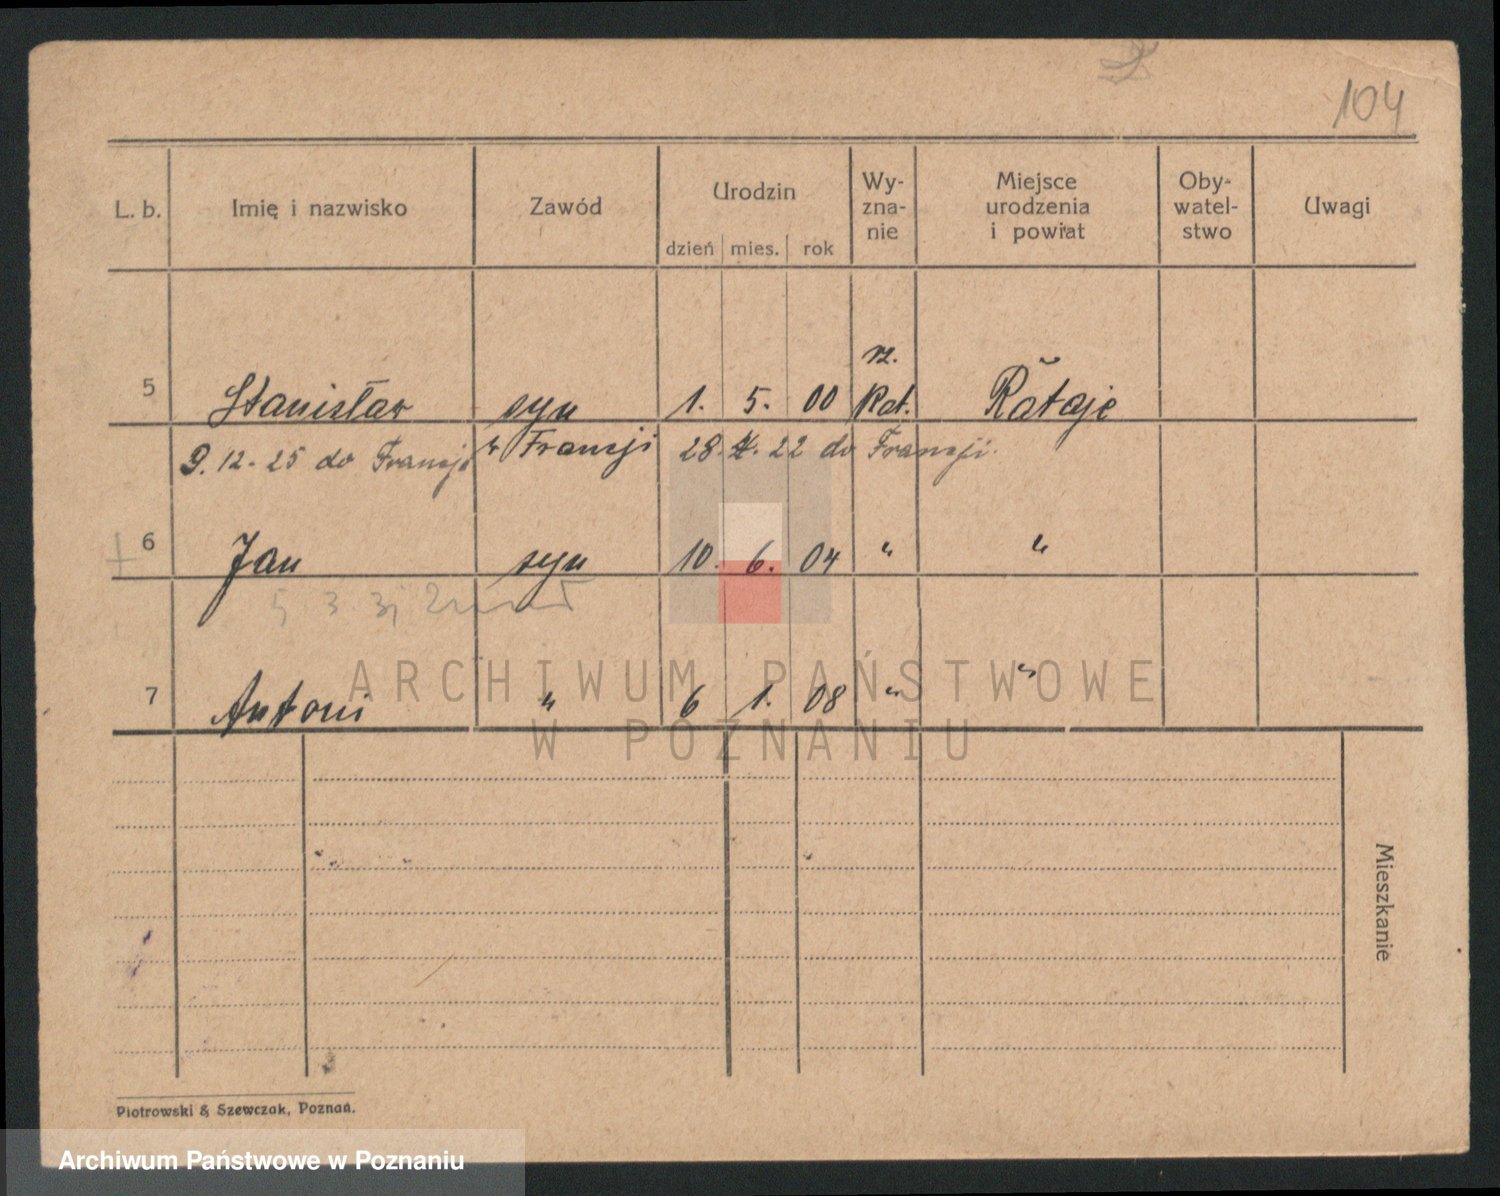 104
L. b. Imię i nazwisko Zawód Urodzin dzień mies. rok Wy-zna-nie Miejsce urodzenia i powiat Oby-watel-stwo Uwagi
rz.
5 Stanisław syn 1. 5. 00 Kat. Rataje
9. 12. 25 do Francji w Francji 28. 22 do Francji.
6 Jan syn 10. 6. 04 " "
5. 3. 31
7 Antoni " 6 1. 08 " "
ARCHIWUM PAŃSTWOWE
W POZNANIU
Mieszkanie
Piotrowski & Szewczak, Poznań.
Archiwum Państwowe w Poznaniu